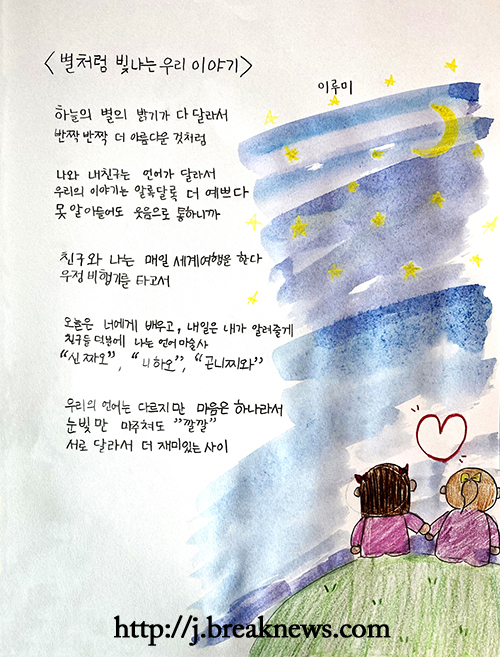 <별처럼 빛나는 우리 이야기>
이루미
하늘의 별의 밝기가 다 달라서
반짝 반짝 더 아름다운 것처럼
나와 내친구는 언어가 달라서
우리의 이야기는 알록달록 더 예쁘다
못 알아들어도 웃음으로 통하니까
친구와 나는 매일 세계여행을 한다
우정 비행기를 타고서
오늘은 너에게 배우고, 내일은 내가 알려줄게
친구들 덕분에 나는 언어 마술사
"신짜오", "니하오", "곤니찌와"
우리의 언어는 다르지만 마음은 하나라서
눈빛만 마주쳐도 "깔깔"
서로 달라서 더 재미있는 사이
http://j.breaknews.com